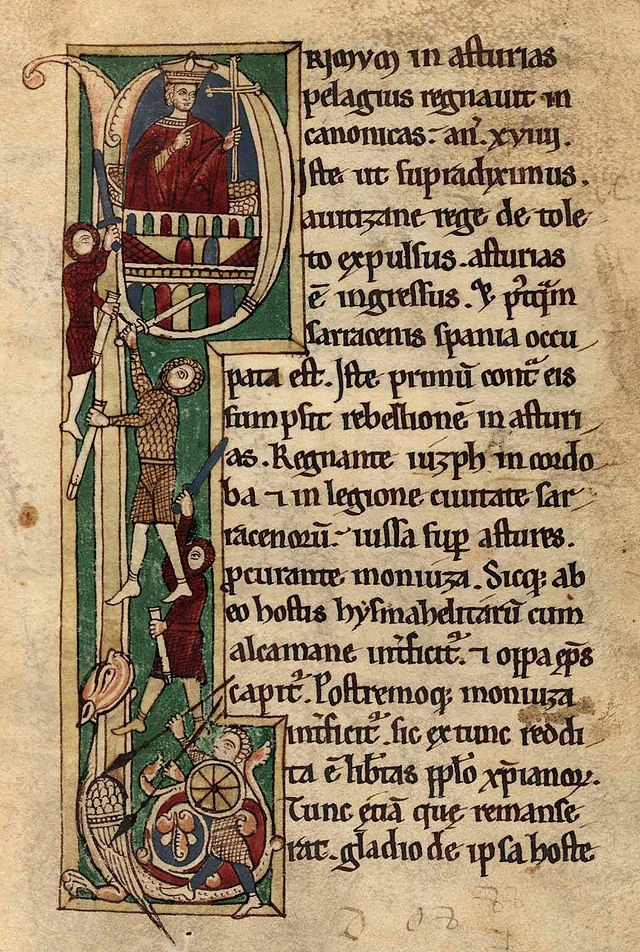 PRIMUM in asturias
pelagius regnauit in
canonicas. an̄. xviiij.
Iste ut supradiximus.
auitizane rege de tole
to expulsus. asturias
ē ingressus. & p̄tqȃm
sarracenis spania occu
pata est. Iste primū cont̄ eis
sumpsit rebellionē in asturi
as. Regnante iuzph in cordo
ba ⁊ in legione ciuitate sar
racenorū. iussa sup̱ astures.
ꝓcurante moniuza. Sicq; ab
eo hostis hysmahelitarū cum
alcamane int̄ficit᷑. ⁊ oppa ep̄s
capit᷑. Postremoq; moniuza
int̄ficit᷑. sic ex tunc reddi
ta ē lib̄tas pp̄lo xp̄ianoꝝ.
Tunc etiā que remanse
rat. gladio de ipsa hoste